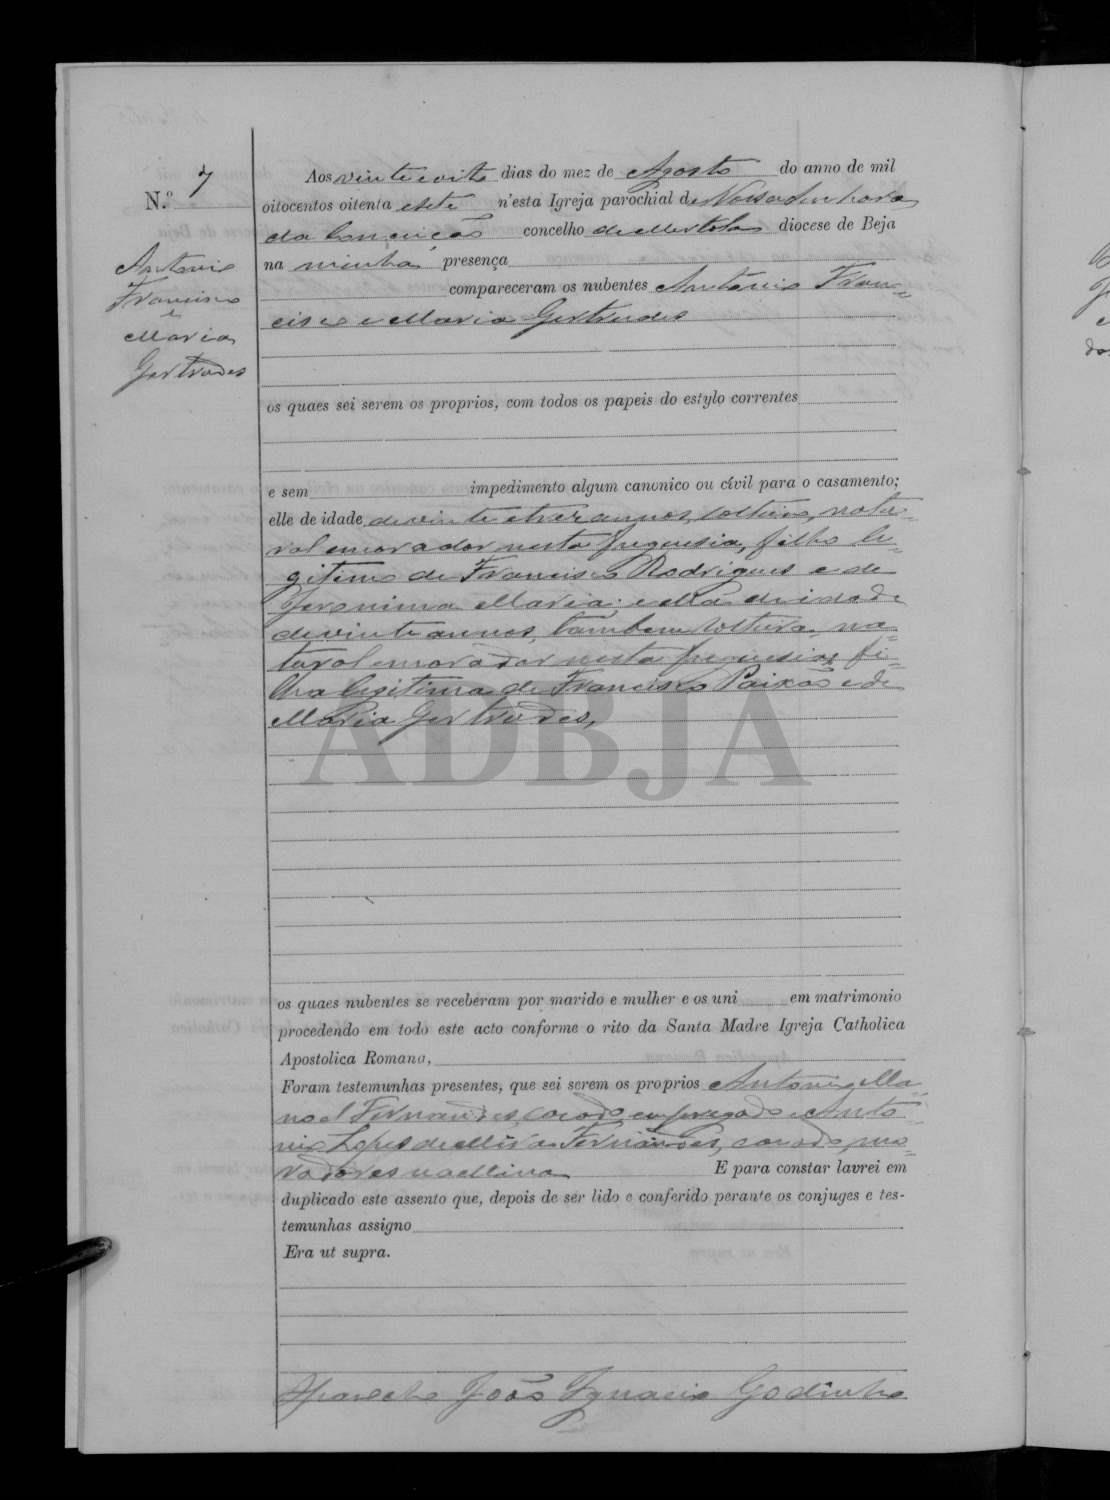 N.º 7
Antonio
Francisco
e
Maria
Gertrudes
Aos vinte e oito dias do mez de Agosto do anno de mil
oitocentos oitenta e sete n'esta Igreja parochial de Nossa Senhora
da Conceição concelho de Mertola diocese de Beja
na minha presença
compareceram os nubentes Antonio Fran=
cisco e Maria Gertrudes
os quaes sei serem os proprios, com todos os papeis do estylo correntes
e sem impedimento algum canonico ou civil para o casamento;
elle de idade de vinte e tres annos, solteiro, natu=
ral e morador nesta freguesia, filho le=
gitimo de Francisco Rodrigues e de
Jeronima Maria; e ella de idade
de vinte annos, tambem solteira, na=
tural e morador nesta freguesia, fi=
lha legitima de Francisco Paixão e de
Maria Gertrudes,
ADBJA
os quaes nubentes se receberam por marido e mulher e os uni em matrimonio
procedendo em todo este acto conforme o rito da Santa Madre Igreja Catholica
Apostolica Romana,
Foram testemunhas presentes, que sei serem os proprios Antonio Ma=
noel Fernandes, casado, empregado e Anto=
nio Lopes de Fernandes, casado, mo=
radores na Mina E para constar lavrei em
duplicado este assento que, depois de ser lido e conferido perante os conjuges e tes-
temunhas assigno
Era ut supra.
O Parocho João Ignacio Godinho